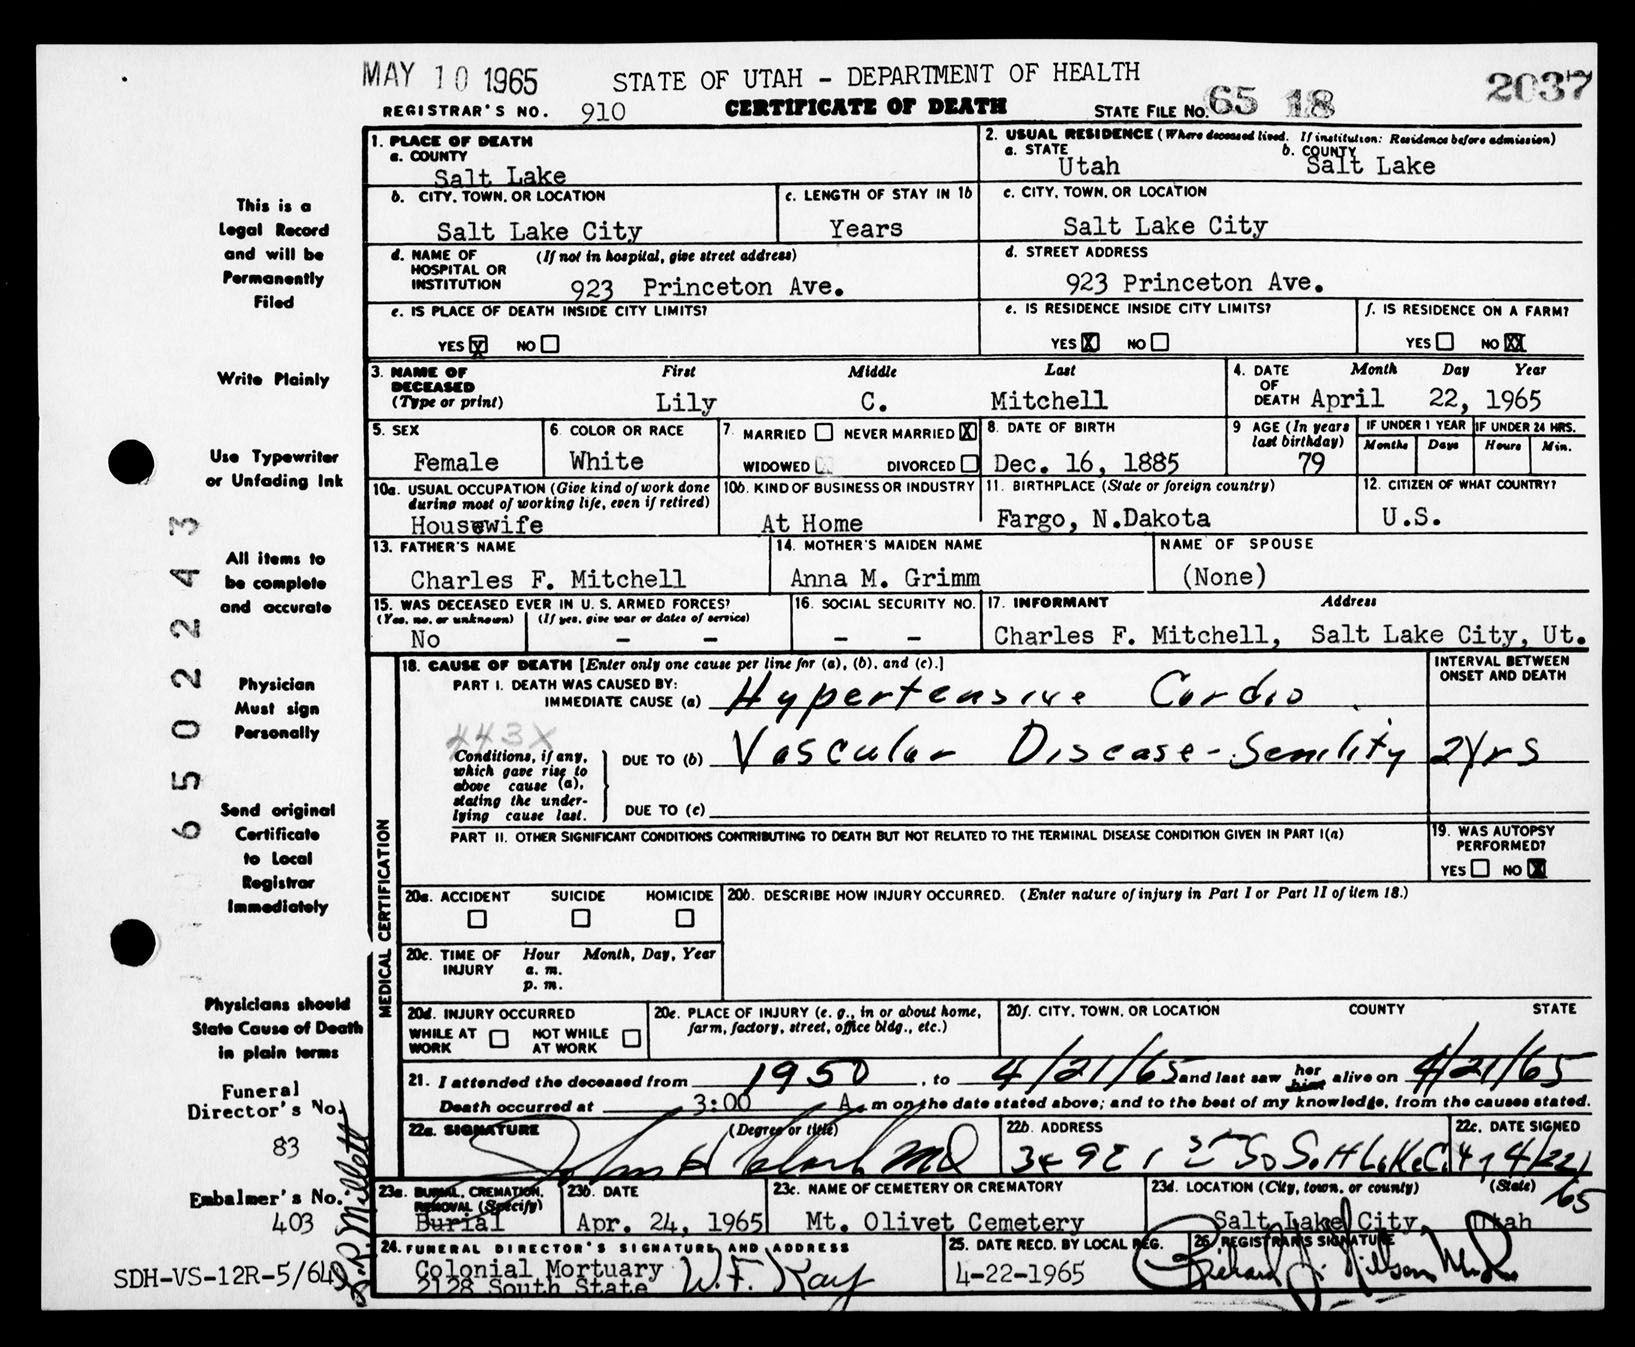 MAY 10 1965 STATE OF UTAH - DEPARTMENT OF HEALTH 2037
REGISTRAR'S NO. 910 CERTIFICATE OF DEATH STATE FILE NO. 65 18
1. PLACE OF DEATH
a. COUNTY
Salt Lake
2. USUAL RESIDENCE (Where deceased lived. If institution: Residence before admission)
a. STATE b. COUNTY
Utah Salt Lake
b. CITY, TOWN, OR LOCATION
Salt Lake City
c. LENGTH OF STAY IN 1b
Years
c. CITY, TOWN, OR LOCATION
Salt Lake City
d. NAME OF (If not in hospital, give street address)
HOSPITAL OR
INSTITUTION 923 Princeton Ave.
d. STREET ADDRESS
923 Princeton Ave.
e. IS PLACE OF DEATH INSIDE CITY LIMITS?
YES X NO
e. IS RESIDENCE INSIDE CITY LIMITS?
YES X NO
f. IS RESIDENCE ON A FARM?
YES NO XX
3. NAME OF First Middle Last
DECEASED
(Type or print) Lily C. Mitchell
4. DATE Month Day Year
OF
DEATH April 22, 1965
5. SEX
Female
6. COLOR OR RACE
White
7. MARRIED NEVER MARRIED X
WIDOWED DIVORCED
8. DATE OF BIRTH
Dec. 16, 1885
9 AGE (In years
last birthday)
79
IF UNDER 1 YEAR
Months Days
IF UNDER 24 HRS.
Hours Min.
10a. USUAL OCCUPATION (Give kind of work done
during most of working life, even if retired)
Housewife
10b. KIND OF BUSINESS OR INDUSTRY
At Home
11. BIRTHPLACE (State or foreign country)
Fargo, N.Dakota
12. CITIZEN OF WHAT COUNTRY?
U.S.
13. FATHER'S NAME
Charles F. Mitchell
14. MOTHER'S MAIDEN NAME
Anna M. Grimm
NAME OF SPOUSE
(None)
15. WAS DECEASED EVER IN U. S. ARMED FORCES?
(Yes, no, or unknown) (If yes, give war or dates of service)
No - -
16. SOCIAL SECURITY NO.
- -
17. INFORMANT Address
Charles F. Mitchell, Salt Lake City, Ut.
MEDICAL CERTIFICATION
18. CAUSE OF DEATH [Enter only one cause per line for (a), (b), and (c).]
INTERVAL BETWEEN
ONSET AND DEATH
PART I. DEATH WAS CAUSED BY:
IMMEDIATE CAUSE (a) Hypertensive Cardio
443X
Conditions, if any,
which gave rise to
above cause (a),
stating the under-
lying cause last.
DUE TO (b) Vascular Disease - Senility 2 yrs
DUE TO (c)
PART II. OTHER SIGNIFICANT CONDITIONS CONTRIBUTING TO DEATH BUT NOT RELATED TO THE TERMINAL DISEASE CONDITION GIVEN IN PART I(a)
19. WAS AUTOPSY
PERFORMED?
YES NO X
20a. ACCIDENT SUICIDE HOMICIDE
20b. DESCRIBE HOW INJURY OCCURRED. (Enter nature of injury in Part I or Part II of item 18.)
20c. TIME OF Hour Month, Day, Year
INJURY a. m.
p. m.
20d. INJURY OCCURRED
WHILE AT WORK NOT WHILE AT WORK
20e. PLACE OF INJURY (e. g., in or about home,
farm, factory, street, office bldg., etc.)
20f. CITY, TOWN, OR LOCATION COUNTY STATE
21. I attended the deceased from 1950, to 4/21/65 and last saw her him alive on 4/21/65
Death occurred at 3:00 A. m on the date stated above; and to the best of my knowledge, from the causes stated.
22a. SIGNATURE (Degree or title)
John H Clark MD
22b. ADDRESS
22c. DATE SIGNED
4/22/65
23a. BURIAL, CREMATION,
REMOVAL (Specify)
Burial
23b. DATE
Apr. 24, 1965
23c. NAME OF CEMETERY OR CREMATORY
Mt. Olivet Cemetery
23d. LOCATION (City, town, or county) (State)
Salt Lake City, Utah
24. FUNERAL DIRECTOR'S SIGNATURE AND ADDRESS
Colonial Mortuary W. F. Kay
2128 South State
25. DATE RECD. BY LOCAL REG.
4-22-1965
26 REGISTRAR'S SIGNATURE
Richard J. Nilson M.D.
This is a
Legal Record
and will be
Permanently
Filed
Write Plainly
Use Typewriter
or Unfading Ink
All items to
be complete
and accurate
Physician
Must sign
Personally
Send original
Certificate
to Local
Registrar
Immediately
Physicians should
State Cause of Death
in plain terms
Funeral
Director's No.
83
Embalmer's No.
403
SDH-VS-12R-5/64
65022243